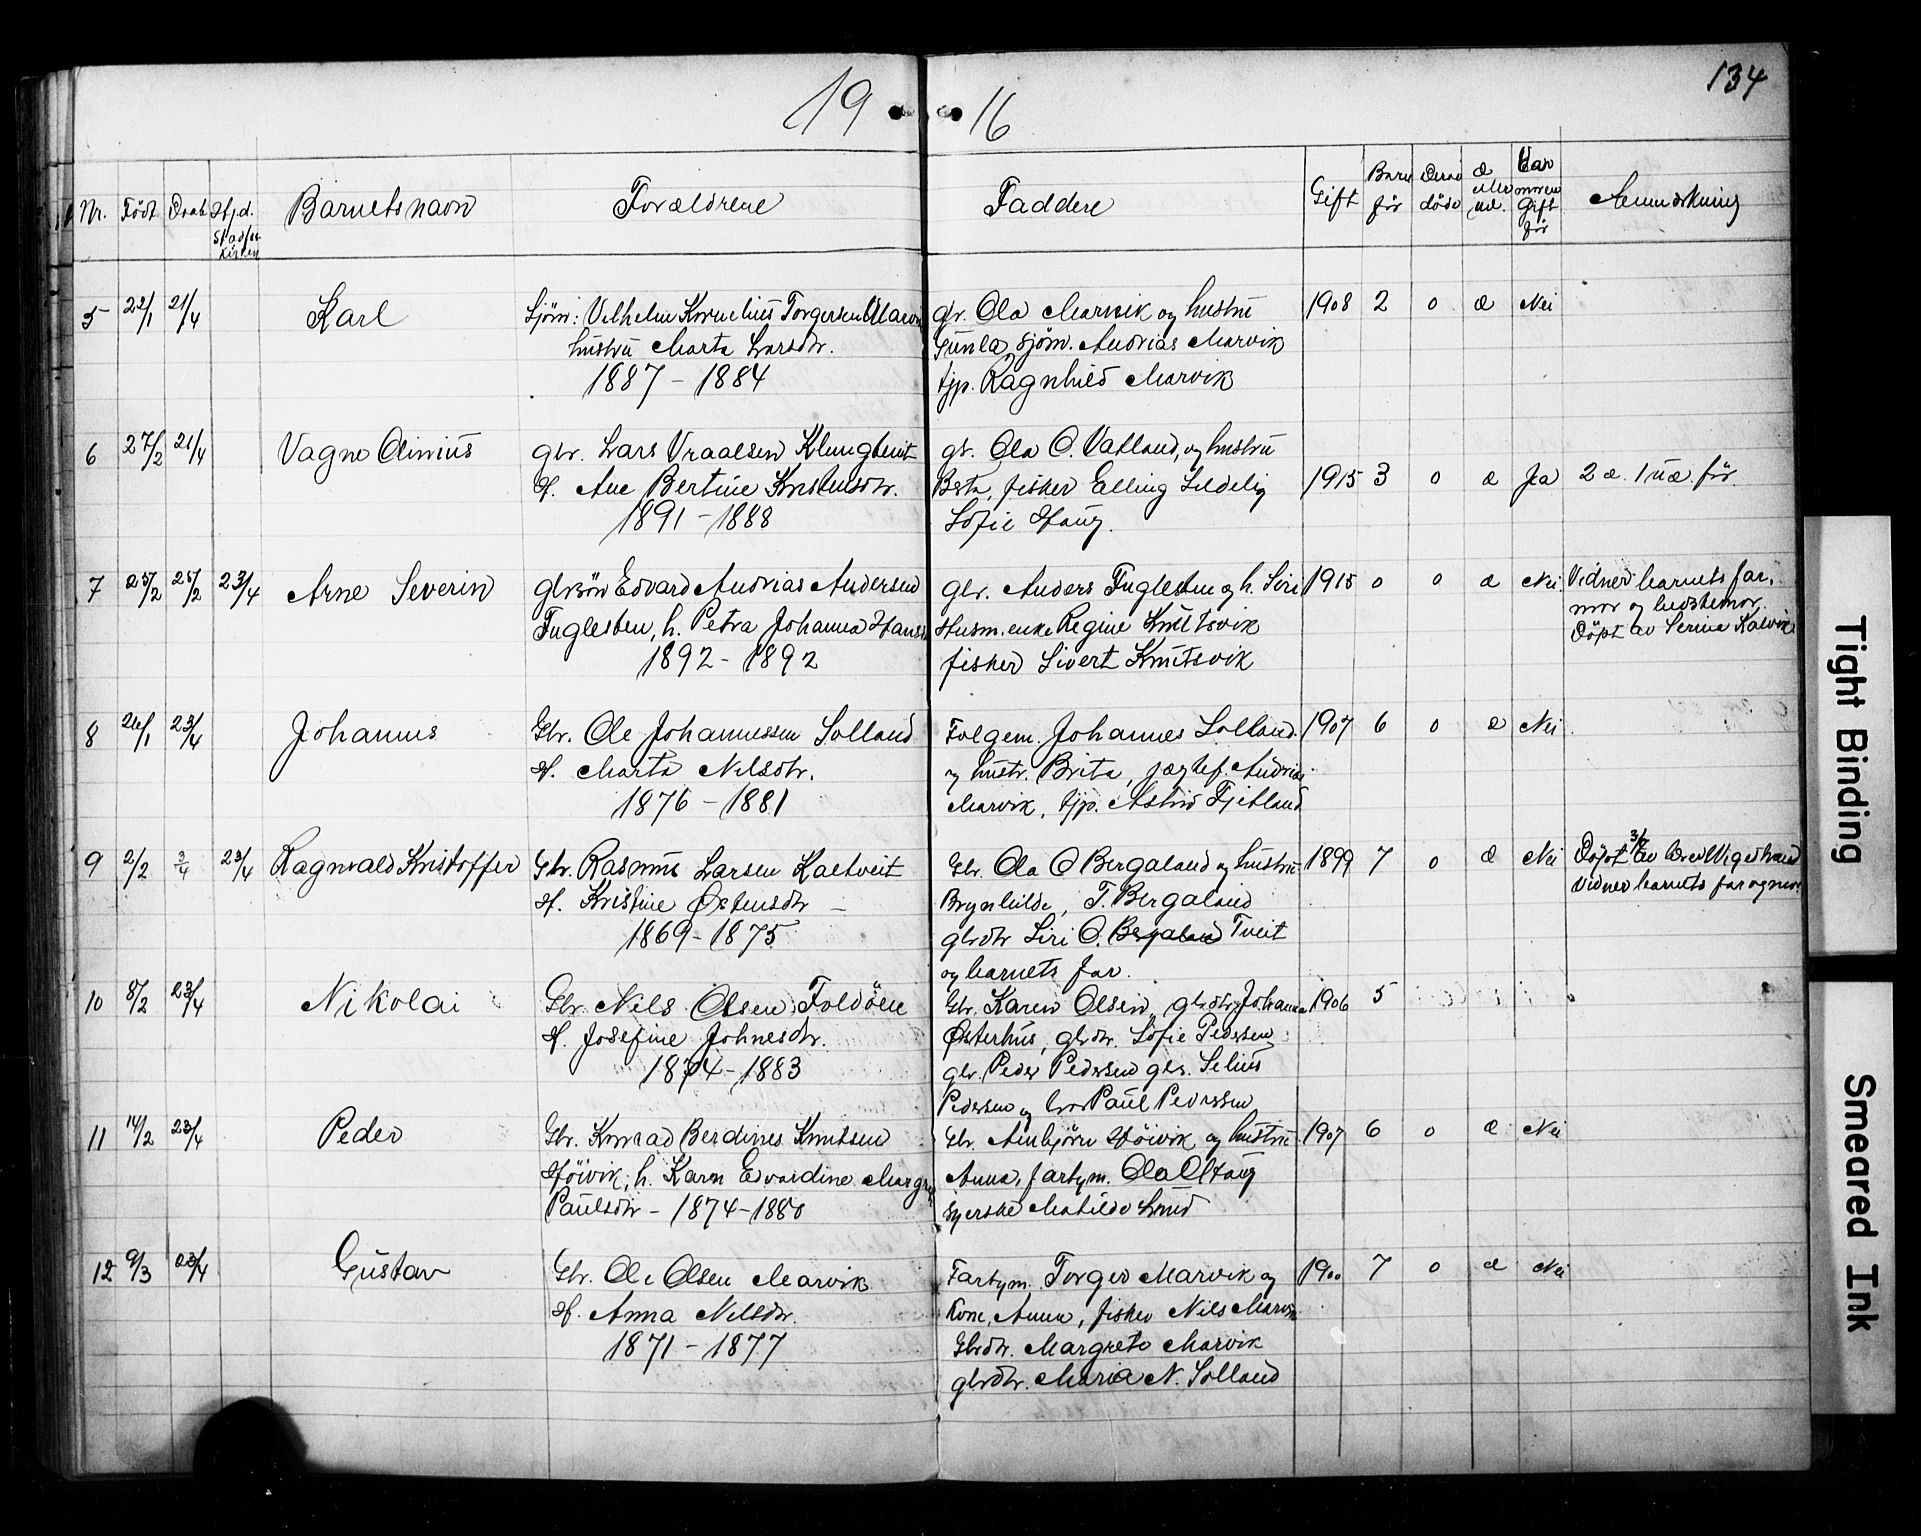 134
19 16
Nr. Født Døbt Stfd. Barnets navn Forældrene Faddere Gift Barn før Derav døde Anmerkning
5 22/1 21/4 Karl Sjöm: Vilhelm Kornelius Torgersen Marvik gbr. Ola Marvik og hustru 1908 2 0 æ Nei
hustru Marta Larsdtr. Gunla, sjöm. Andrias Marvik
1887 - 1884 tjp. Ragnhild Marvik
6 27/2 21/4 Vagne Olinius gbr. Lars Vraalsen Klungtveit gbr. Ola O. Vatland, og hustru
H. Ane Bertine Kristensdtr. Berta, fisker Elling Sildelig 1915 3 0 æ Ja 2 æ. 1 uæ. för
1891 - 1888 Sofie Haug.
7 25/2 25/2 23/4 Arne Severin gbrsön Edvard Andrias Andersen gbr. Anders Fuglesten og h. Siri 1915 0 0 æ Nei. Vidner barnets far,
Fuglesten, h. Petra Johanna Hansd Husm. enke Regine Knutsvik mor og bedstemor.
1892 - 1892 fisker Sivert Knutsvik Döpt av Serina Kalvik
8 26/1 23/4 Johannes Gbr. Ole Johannessen Solland Folgem. Johannes Solland 1907 6 0 æ Nei
H. Marta Nilsdtr. og hustr. Brita, jægtef. Andrias
1876 - 1881 Marvik, tjp. Astrid Fjetland
9 2/2 3/4 23/4 Ragnvald Kristoffer Gbr. Rasmus Larsen Kaltveit Gbr. Ola O Bergaland og hustru 1899 7 0 æ Nei Döpt 3/4 av
H. Kristine Østensdtr - Brynhilde, T. Bergaland Vidner barnets far og mor
1869 - 1875 gbrdtr Siri O. Bergaland Tveit
og barnets far.
10 8/2 23/4 Nikolai Gbr. Nils Olsen Foldöen Gbr. Karen Olsen, gbrdtr Johanna 1906 5
H. Josefine Johnesdtr. Østerhus, gbrdtr. Sofie Pedersen
1874 - 1883 gbr. Peder Pedersen gbs. Selius
Pedersen og bror Paul Pedersen
11 14/2 23/4 Peder Gbr. Konrad Berdines Knutsen Gbr. Arnbjörn Höivik og hustru 1907 6 0 æ Nei
Höivik, h. Karen Evardine Margr. Anna, fartym. Ola O Haug
Paulsdtr - 1874 - 1880 syerske Matilde Lund
12 9/3 23/4 Gustav Gbr. Ole Olsen Marvik Fartym. Torger Marvik og 1900 7 0 æ Nei
H. Anna Nilsdtr. Kone, Anna, fisker Nils Marvik
1871 - 1877 Gbrdtr. Margrete Marvik
gbrdtr. Maria N. Solland
Tight Binding
Smeared Ink